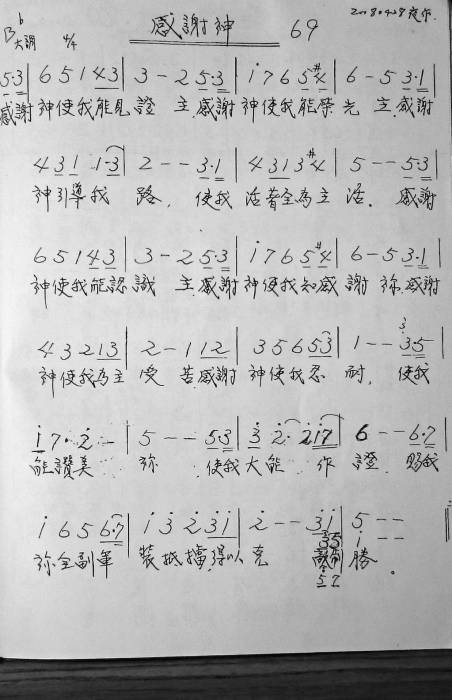 感謝神 69
B♭大調 4/4
5·3 | 6 5 1 4 3 | 3 - 2 5·3 | i 7 6 5 #4 | 6 - 5 3·1 |
感謝神使我能見證主,感謝神使我能榮光主感謝
4 3 1 1·3 | 2 - - 3·1 | 4 3 1 3 #4 | 5 - - 5·3 |
神引導我路,使我活著全為主活.感謝
6 5 1 4 3 | 3 - 2 5·3 | i 7 6 5 #4 | 6 - 5 3·1 |
神使我能認識主,感謝神使我知感謝祢.感謝
4 3 2 1 3 | 2 - 1 1 2 | 3 5 6 5 3 | 1 - - 3·5 |
神使我為主受苦感謝神使我忍耐,使我
i 7· 2 - | 5 - - 5·3 | 3 2· 2 i 7 | 6 - - 6·7 |
能讚美祢使我大能作證賜我
i 6 5 6 6·7 | i 3 2 3 i | 2 - - 3 i | 5 - -
祢全副軍裝抵擋,得以克勝。